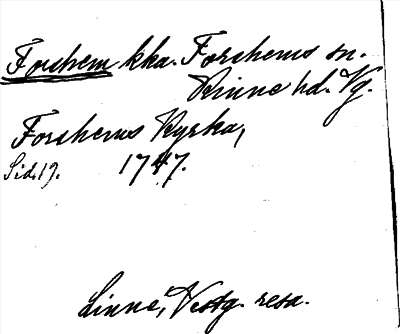 Forshem kka. Forshems sn.
Kinne hd. Vg.
Forshems Kyrka,
Sid. 19. 1747.
Linné, Vestg. resa.